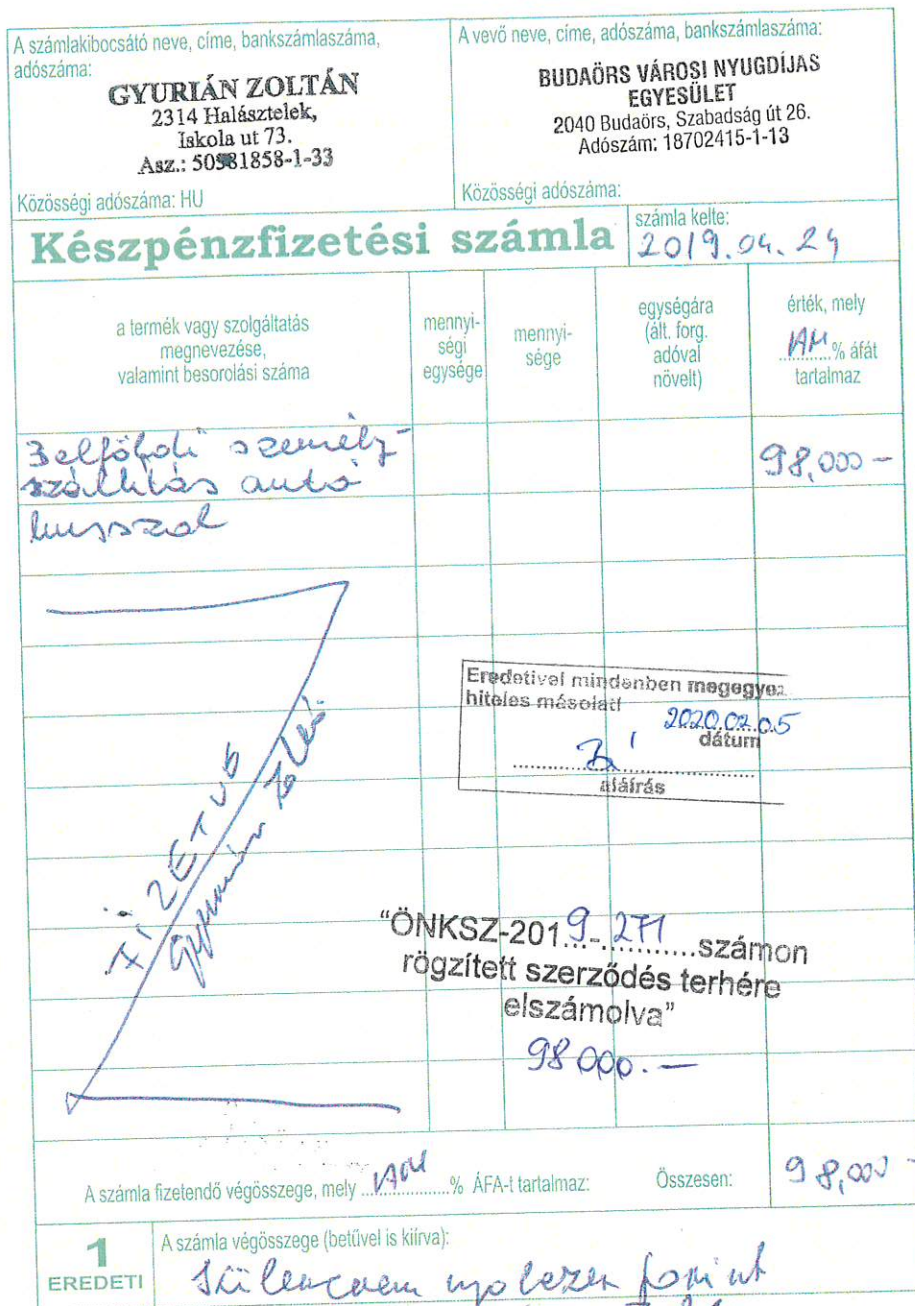 A számlakibocsátó neve, címe, bankszámlaszáma,
adószáma:
GYURIÁN ZOLTÁN
2314 Halásztelek,
Iskola ut 73.
Asz.: 50581858-1-33
Közösségi adószáma: HU
A vevő neve, címe, adószáma, bankszámlaszáma:
BUDAÖRS VÁROSI NYUGDÍJAS
EGYESÜLET
2040 Budaörs, Szabadság út 26.
Adószám: 18702415-1-13
Közösségi adószáma:
Készpénzfizetési számla
számla kelte:
2019.04.24
a termék vagy szolgáltatás
megnevezése,
valamint besorolási száma
mennyi-
ségi
egysége
mennyi-
sége
egységára
(ált. forg.
adóval
növelt)
érték, mely
AM % áfát
tartalmaz
Belföldi személy-
szállítás autó
busszal
98,000 -
Eredetivel mindenben megegyez
hiteles másolat!
2020.02.05
dátum
aláírás
FIZETVE
Gyurián Zoltán
"ÖNKSZ-2019-271 számon
rögzített szerződés terhére
elszámolva"
98 000.-
A számla fizetendő végösszege, mely AM % ÁFA-t tartalmaz:
Összesen:
98,000 -
1
EREDETI
A számla végösszege (betűvel is kiírva):
Kilencven nyolcezer forint